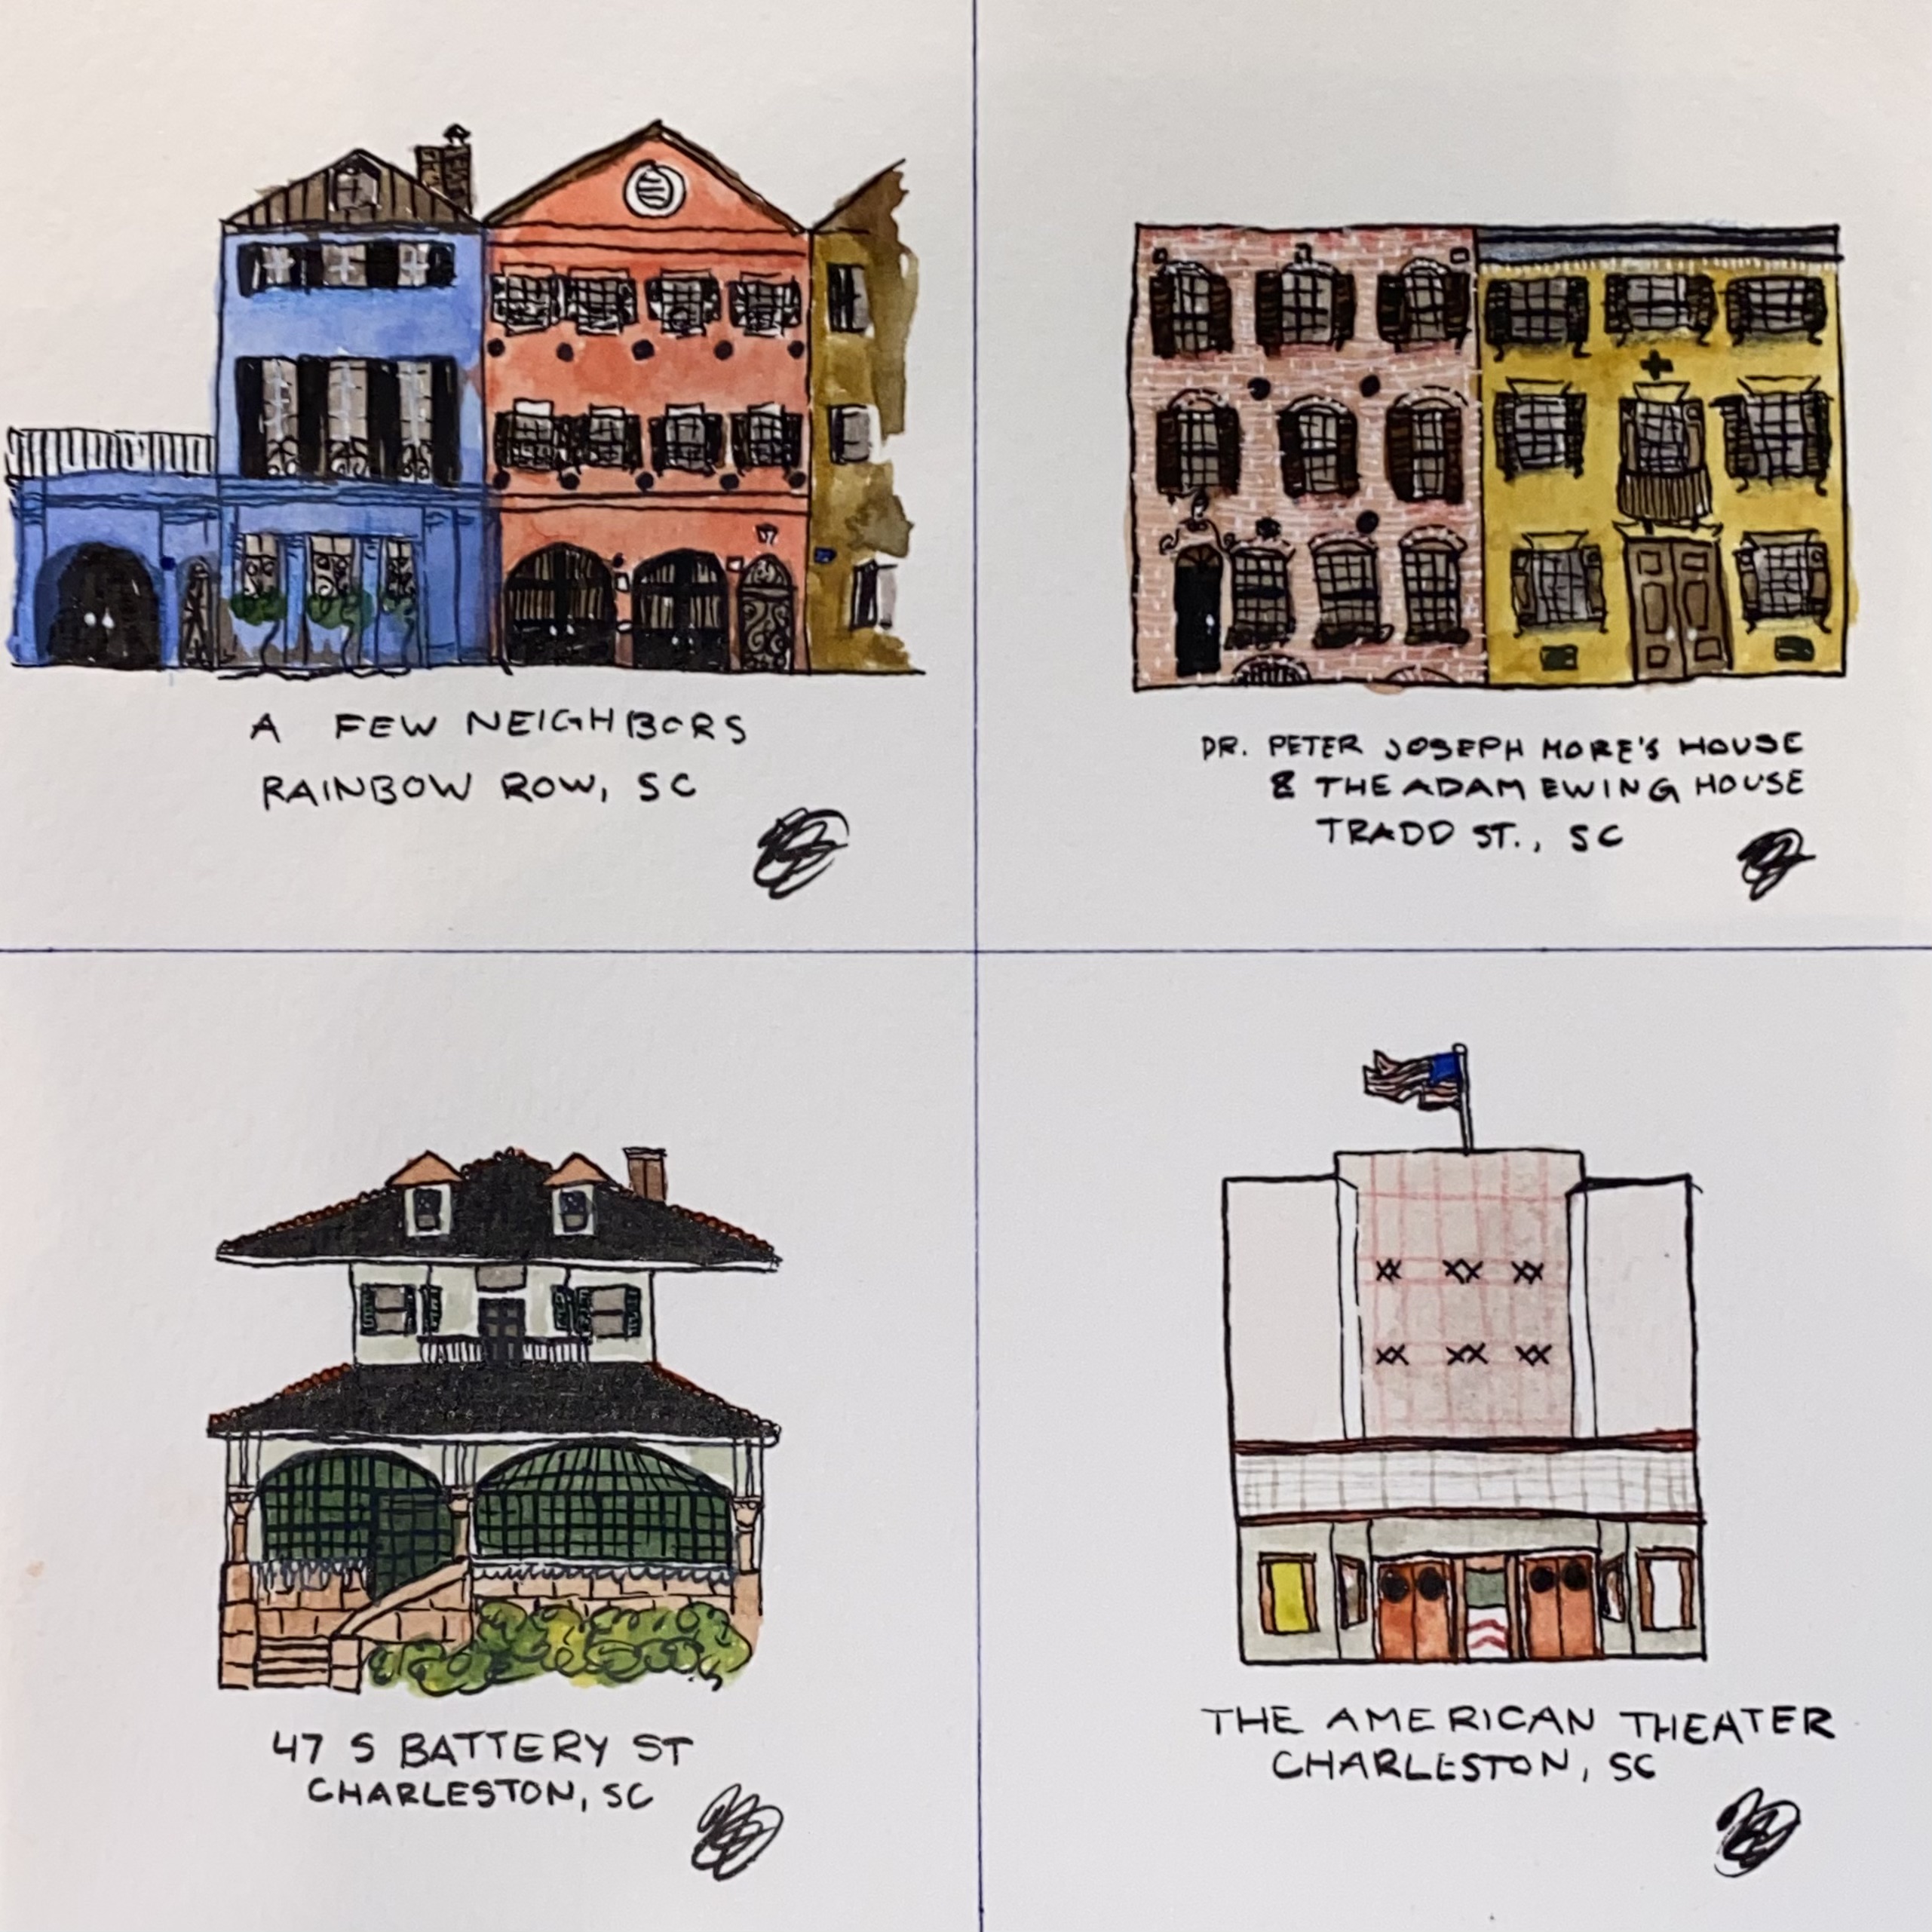 A FEW NEIGHBORS
RAINBOW ROW, SC
DR. PETER JOSEPH MORE'S HOUSE
& THE ADAM EWING HOUSE
TRADD ST., SC
47 S BATTERY ST
CHARLESTON, SC
THE AMERICAN THEATER
CHARLESTON, SC